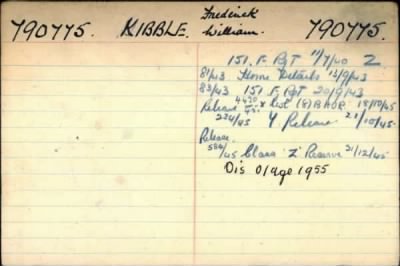 790775. KIBBLE. Frederick William. 790775.
151. F. Rgt 11/7/40 Z
81/43 Home Details 13/9/43
83/43 151 F. Rgt 20/9/43
Release x List (8) BAOR 18/10/45
234/45 Y Release 21/10/45.
Release
584/45 Class "Z" Reserve 21/12/45
Dis O/age 1955